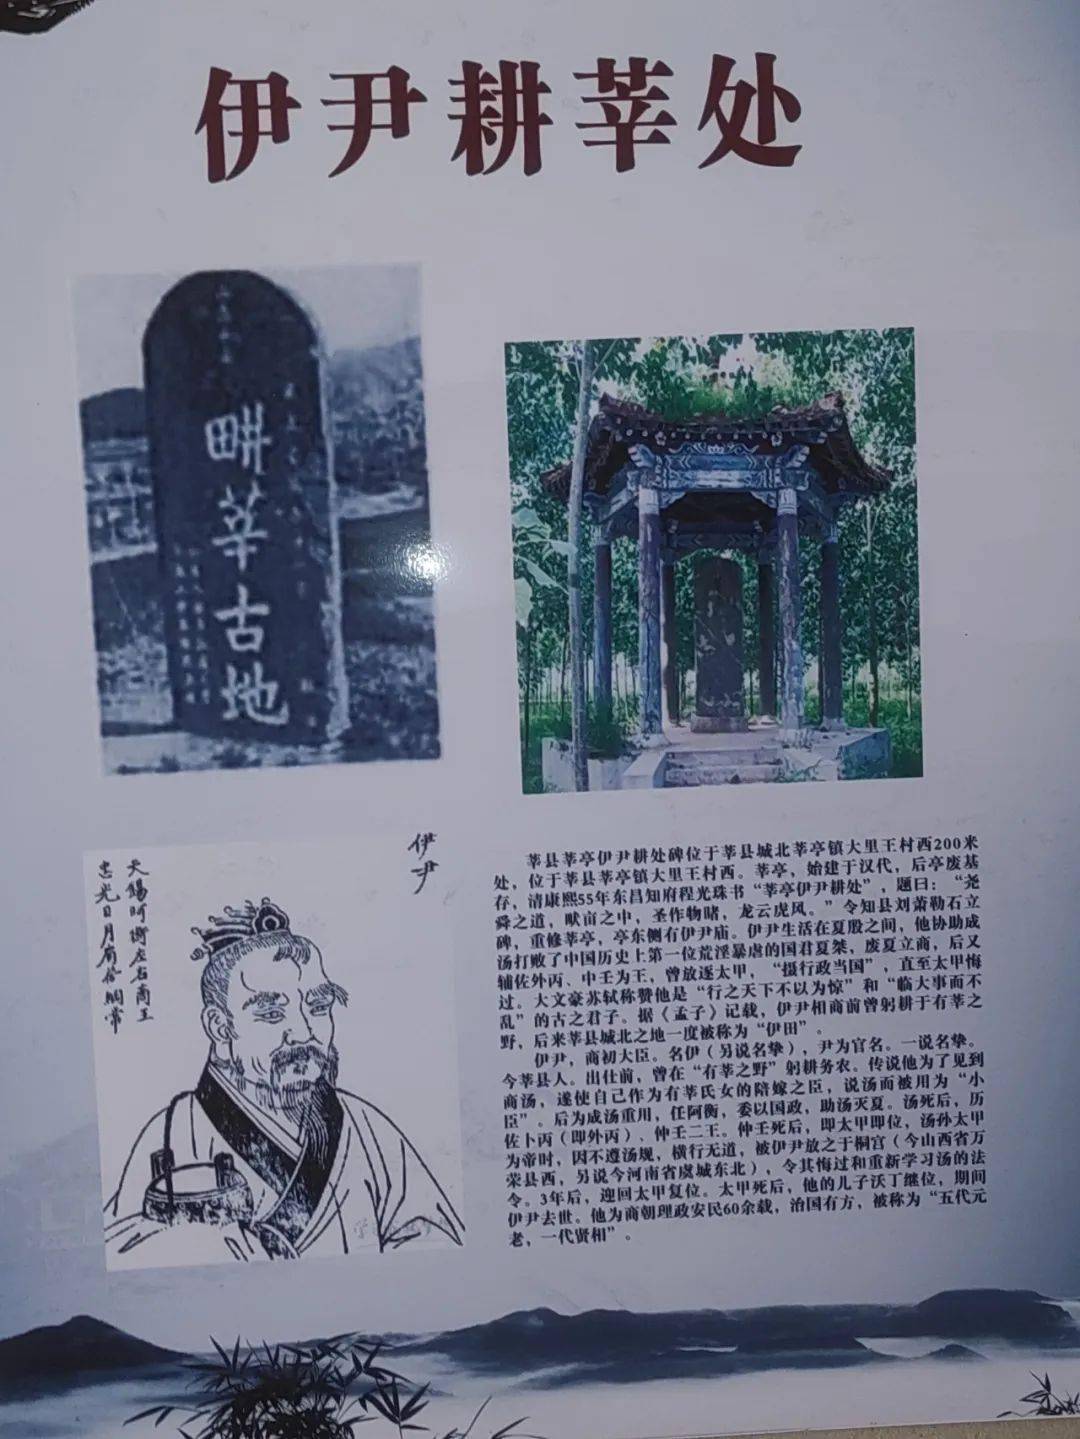 伊尹耕莘处
畊莘古地
伊尹
天锡阿衡左右商王
忠光日月肩俗纲常
莘县莘亭伊尹耕处碑位于莘县城北莘亭镇大里王村西200米
处，位于莘县莘亭镇大里王村西。莘亭，始建于汉代，后亭废基
存，清康熙55年东昌知府程光珠书“莘亭伊尹耕处”，题曰：“尧
舜之道，畎亩之中，圣作物睹，龙云虎风。”令知县刘萧勒石立
碑，重修莘亭，亭东侧有伊尹庙。伊尹生活在夏殷之间，他协助成
汤打败了中国历史上第一位荒淫暴虐的国君夏桀，废夏立商，后又
辅佐外丙、中壬为王，曾放逐太甲，“摄行政当国”，直至太甲悔
过。大文豪苏轼称赞他是“行之天下不以为惊”和“临大事而不
乱”的古之君子。据《孟子》记载，伊尹相商前曾躬耕于有莘之
野，后来莘县城北之地一度被称为“伊田”。
伊尹，商初大臣。名伊（另说名挚），尹为官名。一说名挚。
今莘县人。出仕前，曾在“有莘之野”躬耕务农。传说他为了见到
商汤，遂使自己作为有莘氏女的陪嫁之臣，说汤而被用为“小
臣”。后为成汤重用，任阿衡，委以国政，助汤灭夏。汤死后，历
佐卜丙（即外丙）、仲壬二王。仲壬死后，即太甲即位，汤孙太甲
为帝时，因不遵汤规，横行无道，被伊尹放之于桐宫（今山西省万
荣县西，另说今河南省虞城东北），令其悔过和重新学习汤的法
令。3年后，迎回太甲复位。太甲死后，他的儿子沃丁继位，期间
伊尹去世。他为商朝理政安民60余载，治国有方，被称为“五代元
老，一代贤相”。